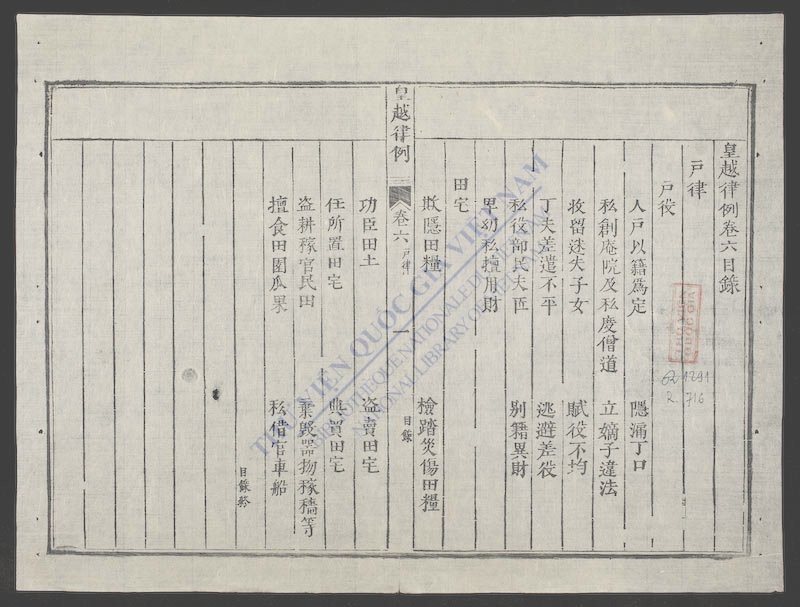 皇越律例卷六目錄
戶律
戶役
人戶以籍為定 隱漏丁口
私創庵院及私度僧道 立嫡子違法
收留迷失子女 賦役不均
丁夫差遣不平 逃避差役
私役部民夫匠 別籍異財
卑幼私擅用財
田宅
欺隱田糧 檢踏災傷田糧
皇越律例 卷六 戶律 一 目錄
功臣田土 盜賣田宅
任所置田宅 典買田宅
盜耕種官民田 棄毀器物稼穡等
擅食田園瓜果 私借官車船
目錄終
THƯ VIỆN QUỐC GIA VIỆT NAM
BIBLIOTHÈQUE NATIONALE DU VIETNAM
NATIONAL LIBRARY OF VIETNAM
R. 716